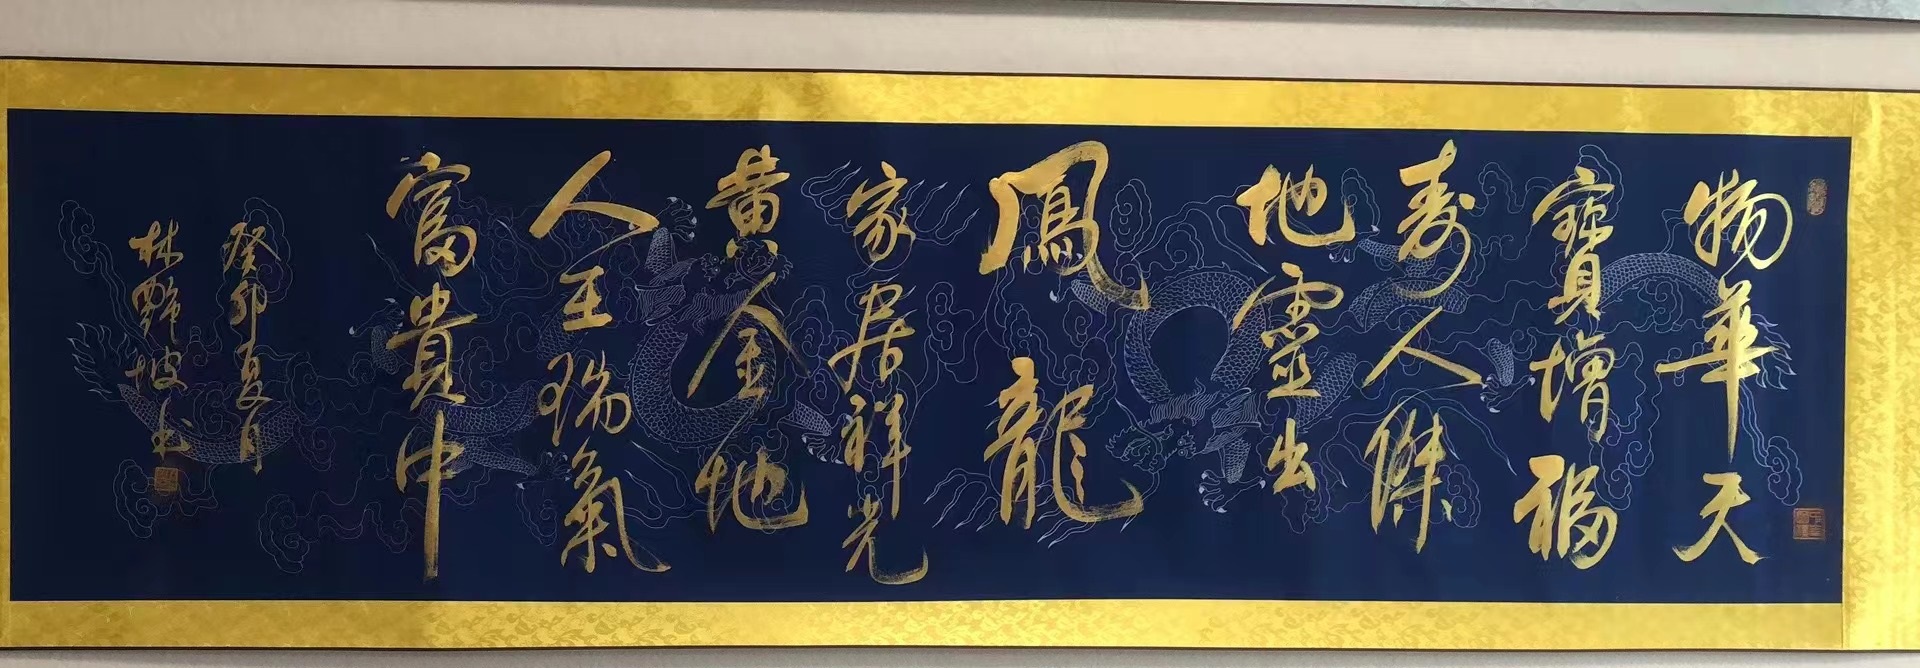 物華天
寶增福
壽人傑
地靈出
鳳龍
家居祥光
黃金地
人王瑞氣
富貴中
癸卯夏月
林野坡书